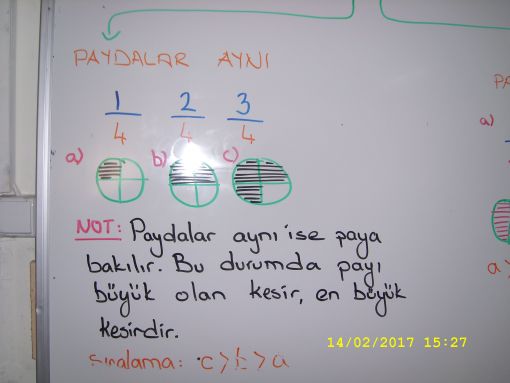 PAYDALAR AYNI
1/4 2/4 3/4
a) b) c)
NOT: Paydalar aynı ise paya
bakılır. Bu durumda payı
büyük olan kesir, en büyük
kesirdir.
Sıralama: c > b > a
PA
a)
a >
14/02/2017 15:27